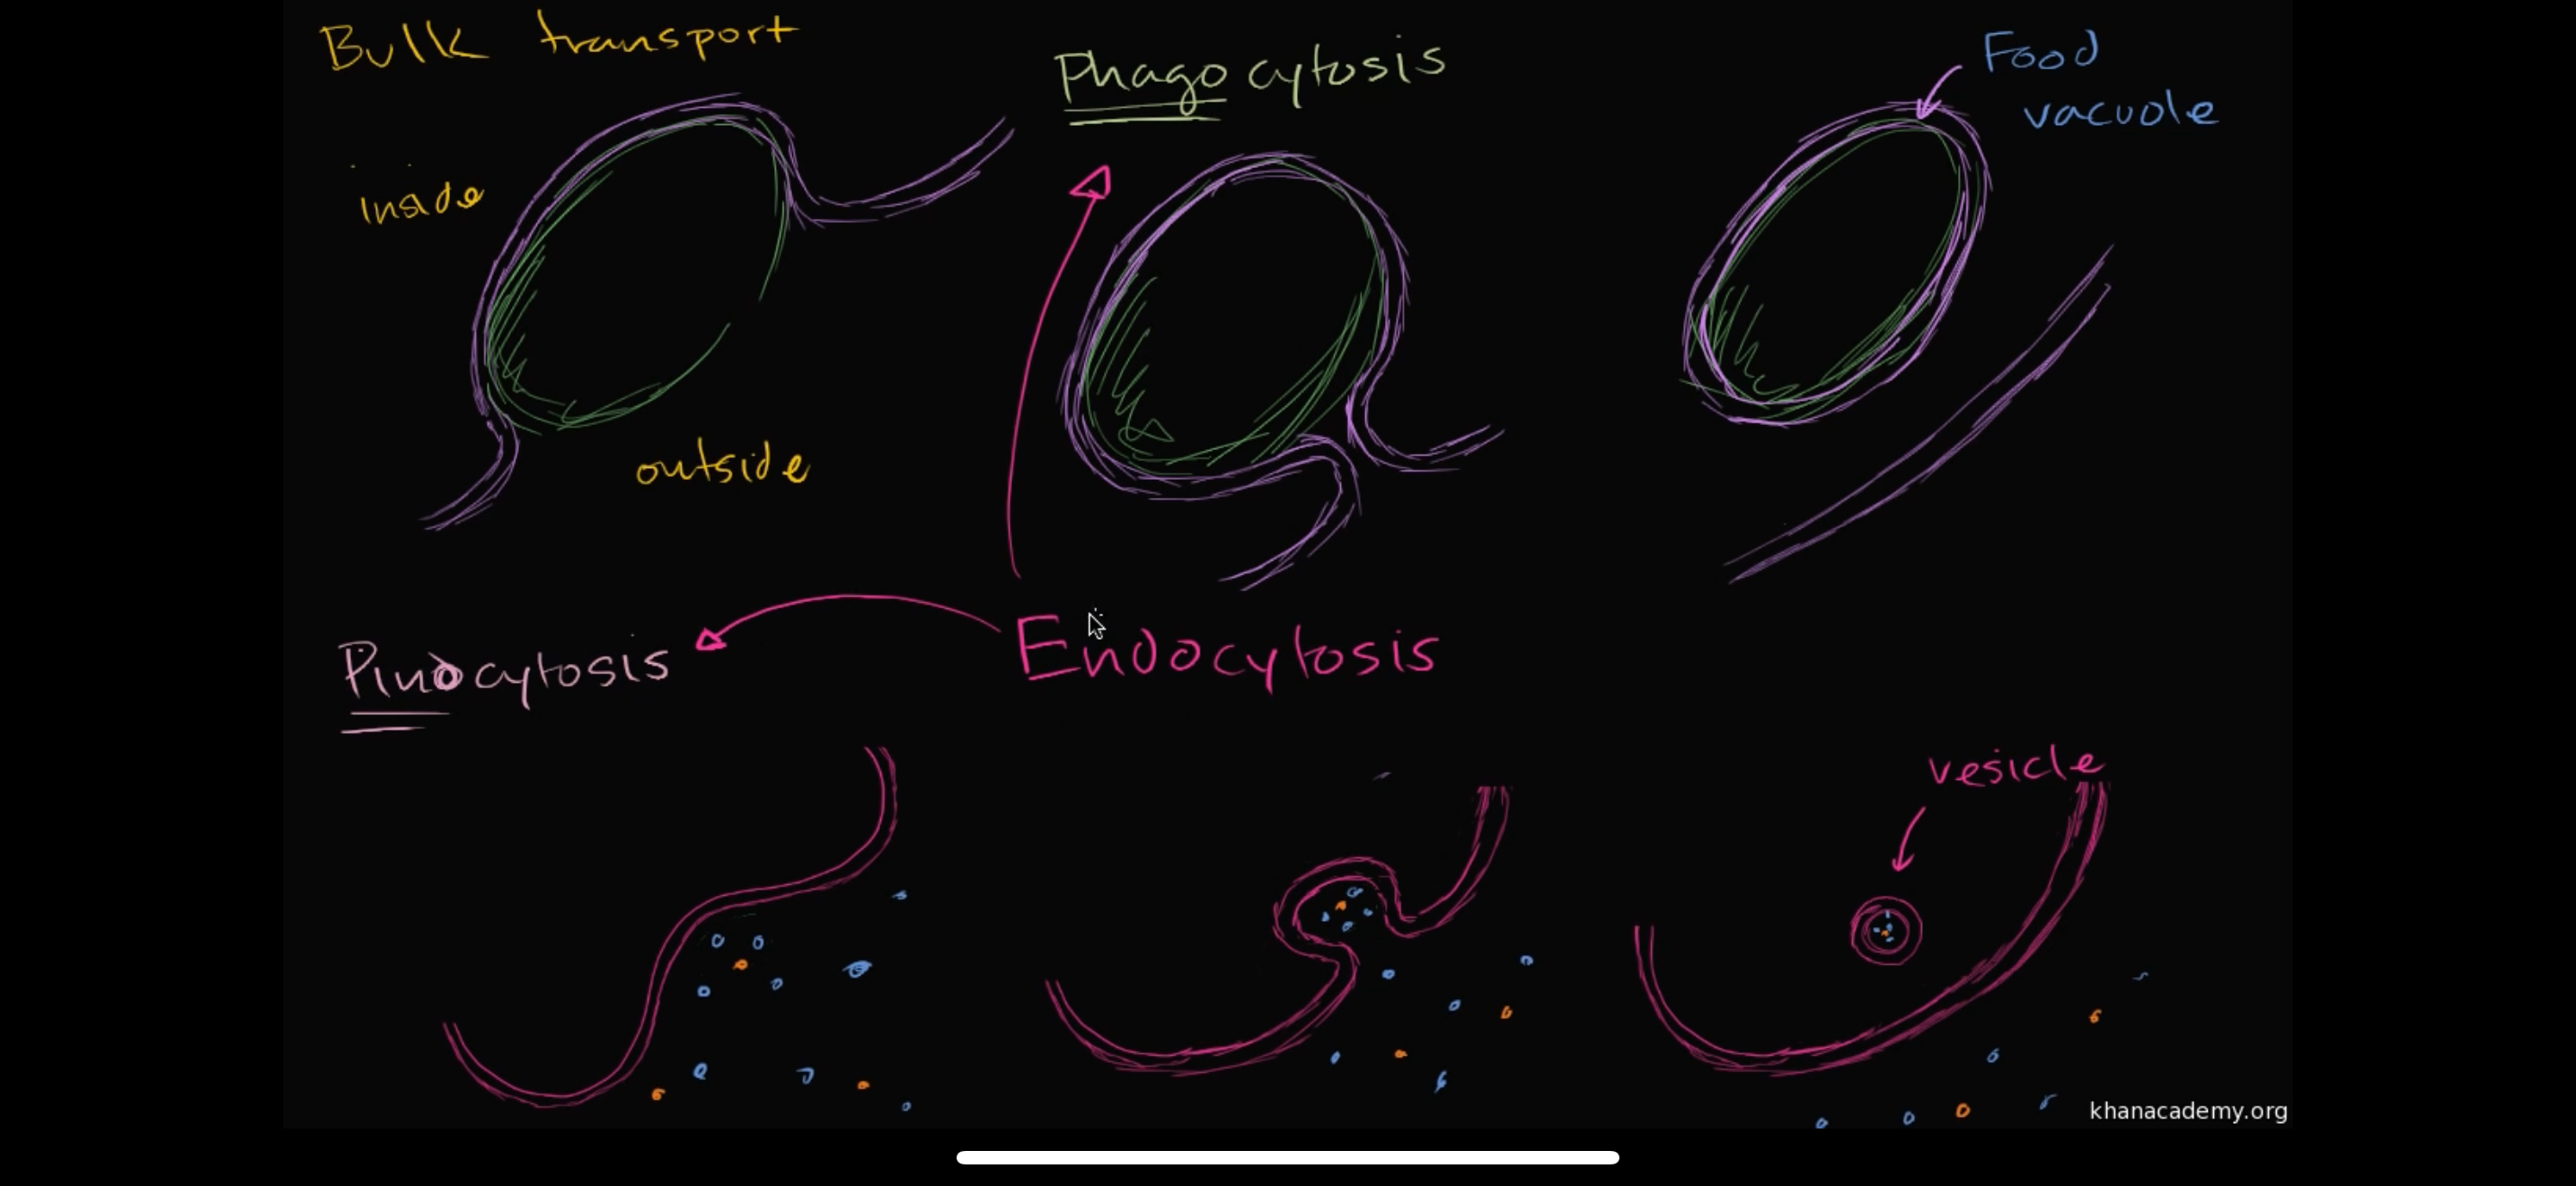 Bulk transport
Phagocytosis
Food
vacuole
inside
outside
Pinocytosis
Endocytosis
vesicle
khanacademy.org